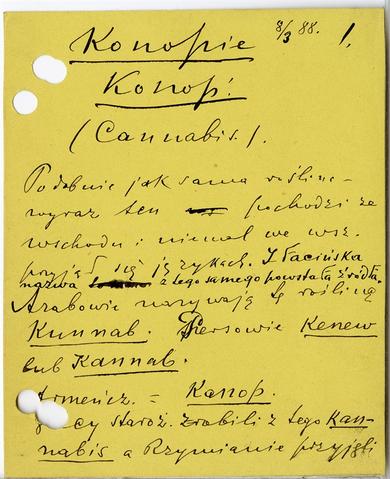 Konopie 8/3 88. 1.
Konop'.
(Cannabis.).
Podobnie jak sama roślina –
wyraz ten pochodzi ze
wschodu i niemal we wsz.
przyjął się językach. I łacińska
nazwa z tego samego powstała źródła.
Arabowie nazywają tę roślinę
Kunnab. Persowie Kenew
lub Kannab.
Armeńcz. = Kanop.
cy staroż. zrobili z tego Kan-
nabis a Rzymianie przyjęli